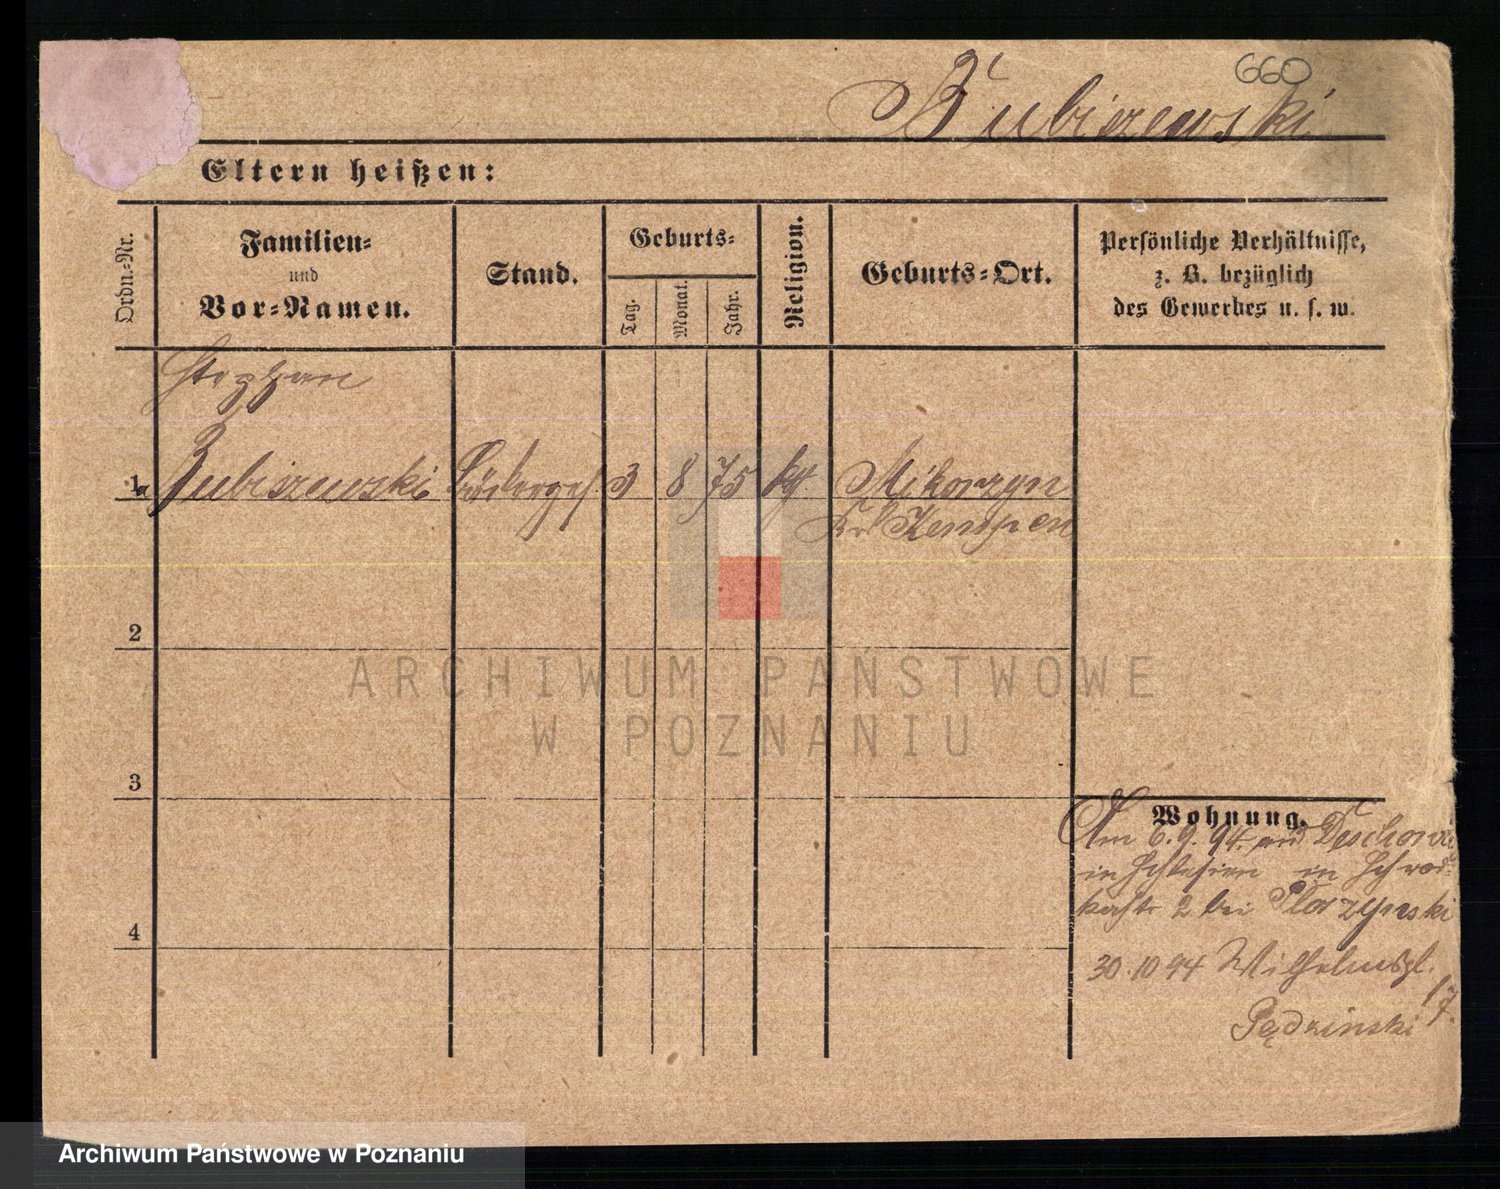 660
Zubiszewski
Eltern heißen:
Ordn.-Nr.
Familien-
und
Vor-Namen.
Stand.
Geburts-
Tag.
Monat.
Jahr.
Religion.
Geburts-Ort.
Persönliche Verhältnisse,
z. B. bezüglich
des Gewerbes u. s. w.
Stephan
1 Zubiszewski Bäckerges. 3 8 75 kth Mikorzyn
Kr. Kempen
2
3
4
Wohnung.
Am 6.9.94. aus
in Schlesien in Schrod-
2 bei
30.10 94 Wilhelmspl.
17.
Pędzinski
ARCHIWUM PAŃSTWOWE
W POZNANIU
Archiwum Państwowe w Poznaniu